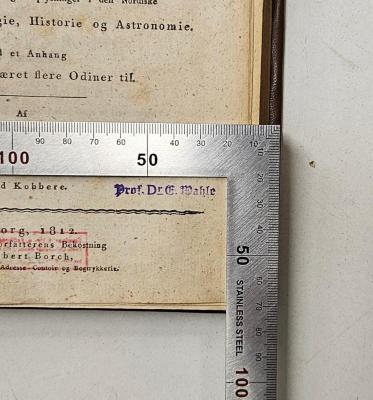 gie, Historie og Astronomie.
et Anhang
æret flere Odiner til.
Af
100 50
90 80 70 60 40 30 20 10
d Kobbere.
Prof. Dr. E. Wahle
org, 1812.
orfatterens Bekostning
bert Borch,
Adresse-Contoir og Bogtrykkerie.
10 20 30 40
50
60 70 80 90
STAINLESS STEEL
100